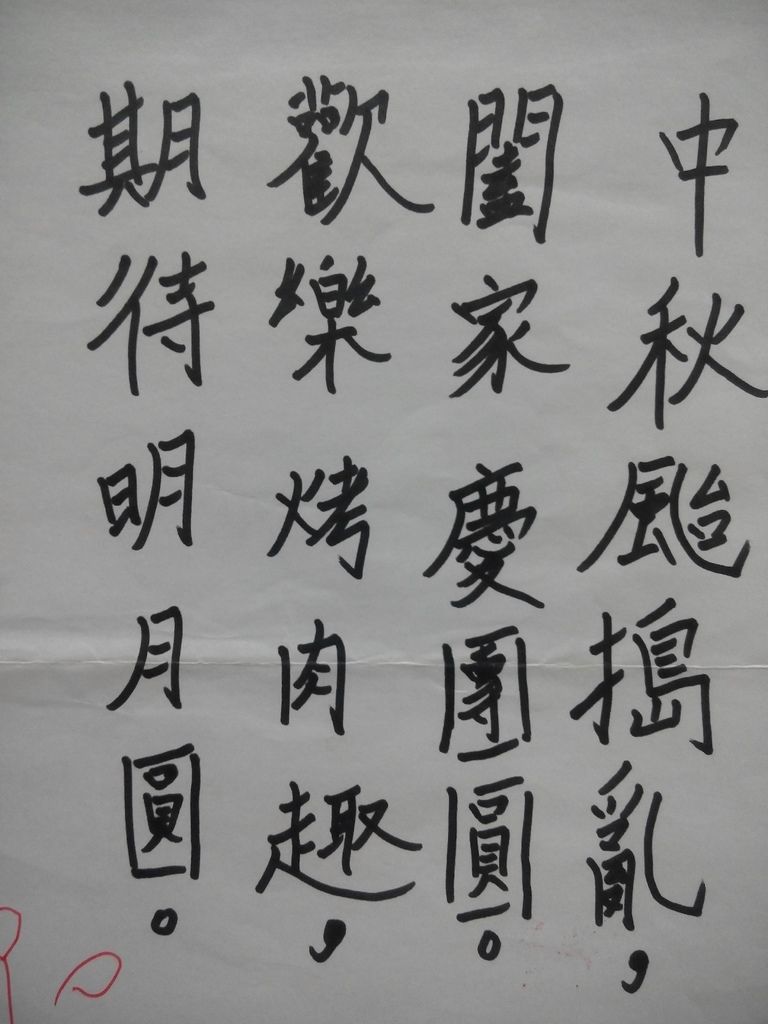 中秋颱搗亂，
闔家慶團圓。
歡樂烤肉趣，
期待明月圓。